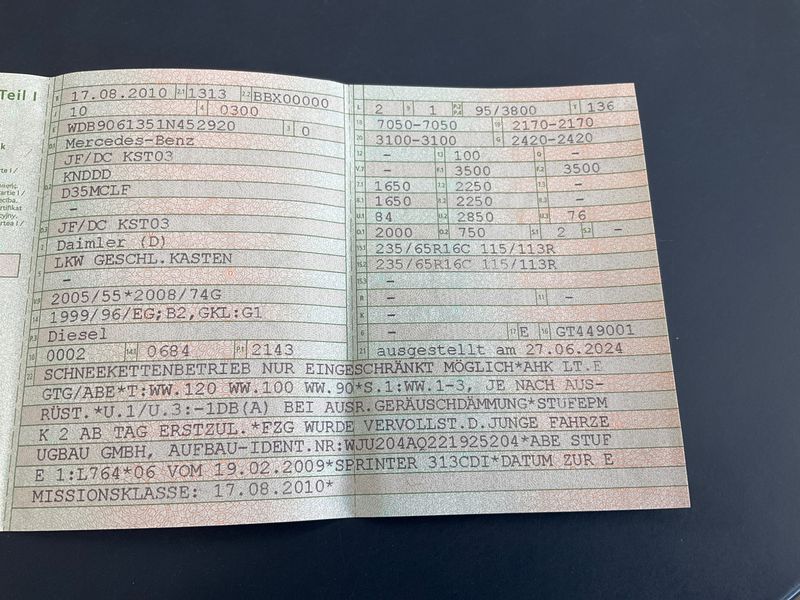 Teil I
B 17.08.2010 2.1 1313 2.2 BBX00000
10 4 0300
E WDB9061351N452920 3 0
Mercedes-Benz
JF/DC KST03
KNDDD
D35MCLF
-
D.3 JF/DC KST03
2 Daimler (D)
5 LKW GESCHL.KASTEN
-
V.9 2005/55*2008/74G
14 1999/96/EG;B2,GKL:G1
P.3 Diesel
10 0002 14.1 0684 P.1 2143
L 2 9 1 P.2 P.4 95/3800 T 136
18 7050-7050 19 2170-2170
20 3100-3100 G 2420-2420
12 - 13 100 Q -
V.7 - F.1 3500 F.2 3500
7.1 1650 7.2 2250 7.3 -
8.1 1650 8.2 2250 8.3 -
U.1 84 U.2 2850 U.3 76
O.1 2000 O.2 750 S.1 2 S.2 -
15.1 235/65R16C 115/113R
15.2 235/65R16C 115/113R
15.3 -
R - 11 -
K -
6 - 17 E 16 GT449001
21 ausgestellt am 27.06.2024
22 SCHNEEKETTENBETRIEB NUR EINGESCHRÄNKT MÖGLICH*AHK LT.E
GTG/ABE*T:WW.120 WW.100 WW.90*S.1:WW.1-3, JE NACH AUS-
RÜST.*U.1/U.3:-1DB(A) BEI AUSR.GERÄUSCHDÄMMUNG*STUFEPM
K 2 AB TAG ERSTZUL.*FZG WURDE VERVOLLST.D.JUNGE FAHRZE
UGBAU GMBH, AUFBAU-IDENT.NR:WJU204AQ221925204*ABE STUF
E 1:L764*06 VOM 19.02.2009*SPRINTER 313CDI*DATUM ZUR E
MISSIONSKLASSE: 17.08.2010*